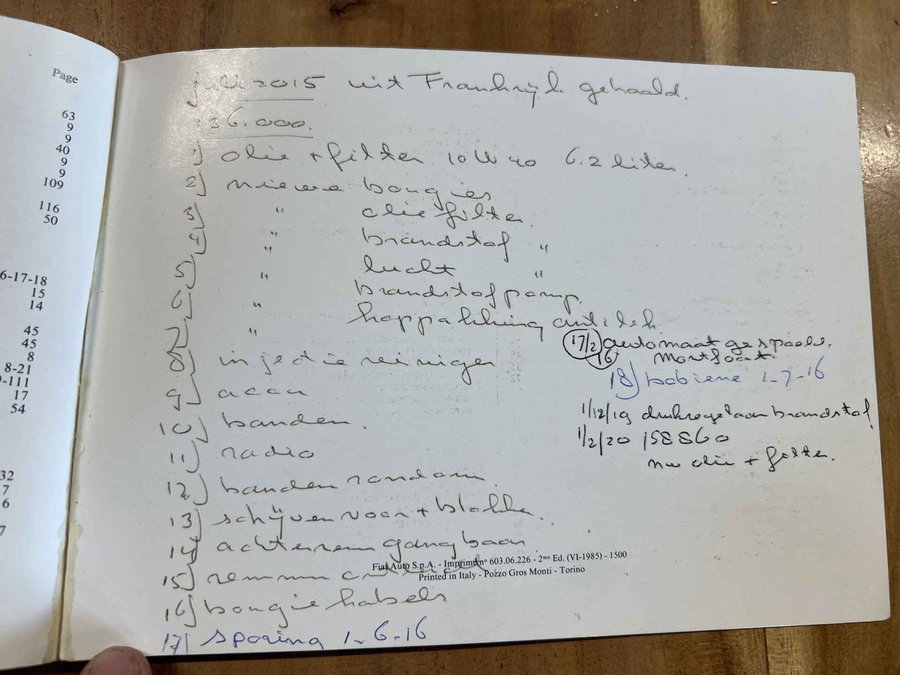 Page
63
9
9
40
9
9
109
116
50
6-17-18
15
14
45
45
8
8-21
9-111
17
54
32
7
6
7
juli 2015 uit Frankrijk gehaald.
136.000.
1) olie + filter 10W40 6.2 liter.
2) nieuwe bougies
3) " olie filter.
4) " brandstof "
5) " lucht "
6) " brandstofpomp.
7) "
8) injectie reiniger
9) accu
10) banden.
11) radio
12) banden rondom.
13) schijven voor + blokken.
14) achterrem gangbaar
15) remmen
16) bougie kabels
17) sporing 1-6-16
17/2/16 automaat gespoeld.
Montfoort.
18) bobiene 1-7-16
1/12/19 drukregelaar brandstof
1/2/20 158860
nw olie + filter.
Fiat Auto S.p.A. - Imprimé nº 603.06.226 - 2me Ed. (VI-1985) - 1500
Printed in Italy - Pozzo Gros Monti - Torino